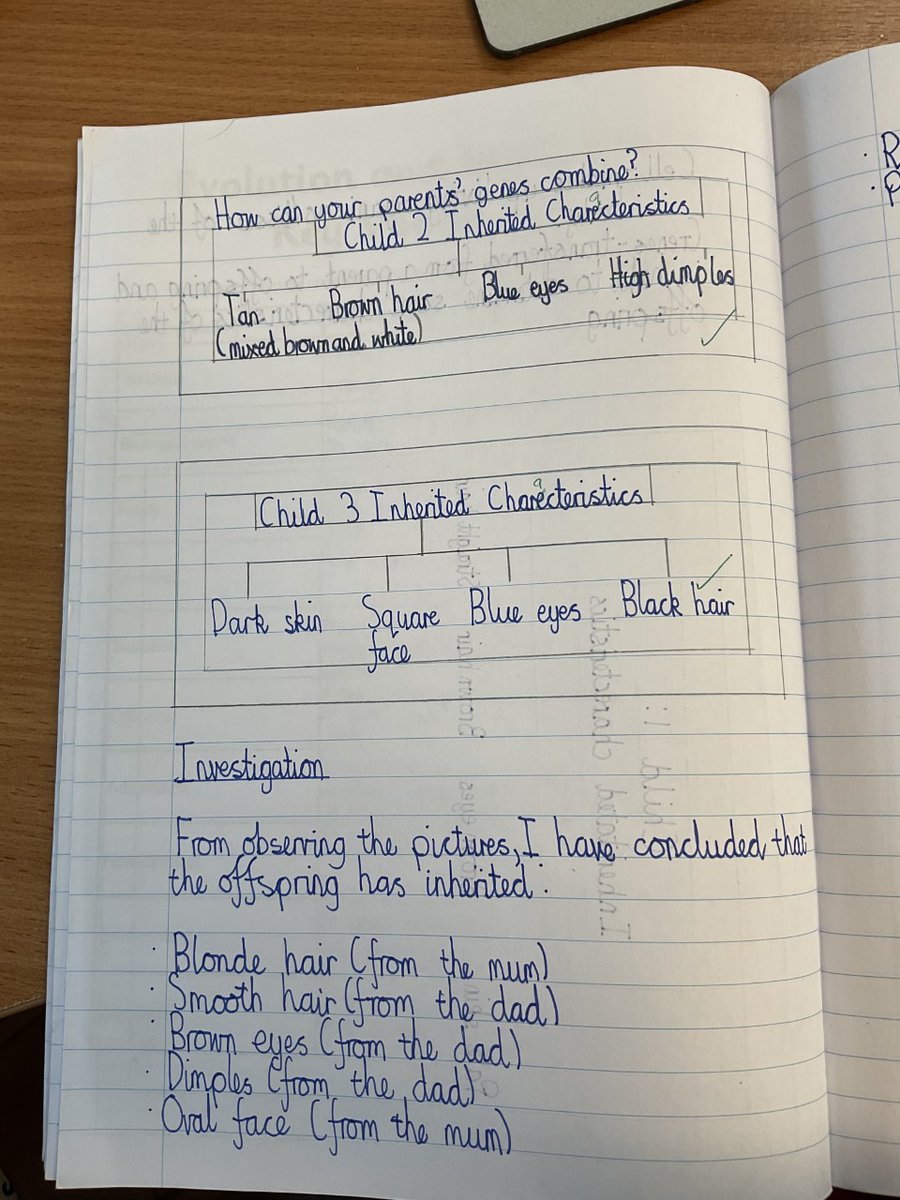 How can your parents' genes combine?
Child 2 Inherited Charecteristics
Tan Brown hair Blue eyes High dimples
(mixed brown and white)
Child 3 Inherited Charecteristics
Dark skin Square Blue eyes Black hair
face
Investigation
From observing the pictures, I have concluded that
the offspring has inherited:
· Blonde hair (from the mum)
· Smooth hair (from the dad)
· Brown eyes (from the dad)
· Dimples (from the dad)
· Oval face (from the mum)
· R
· P